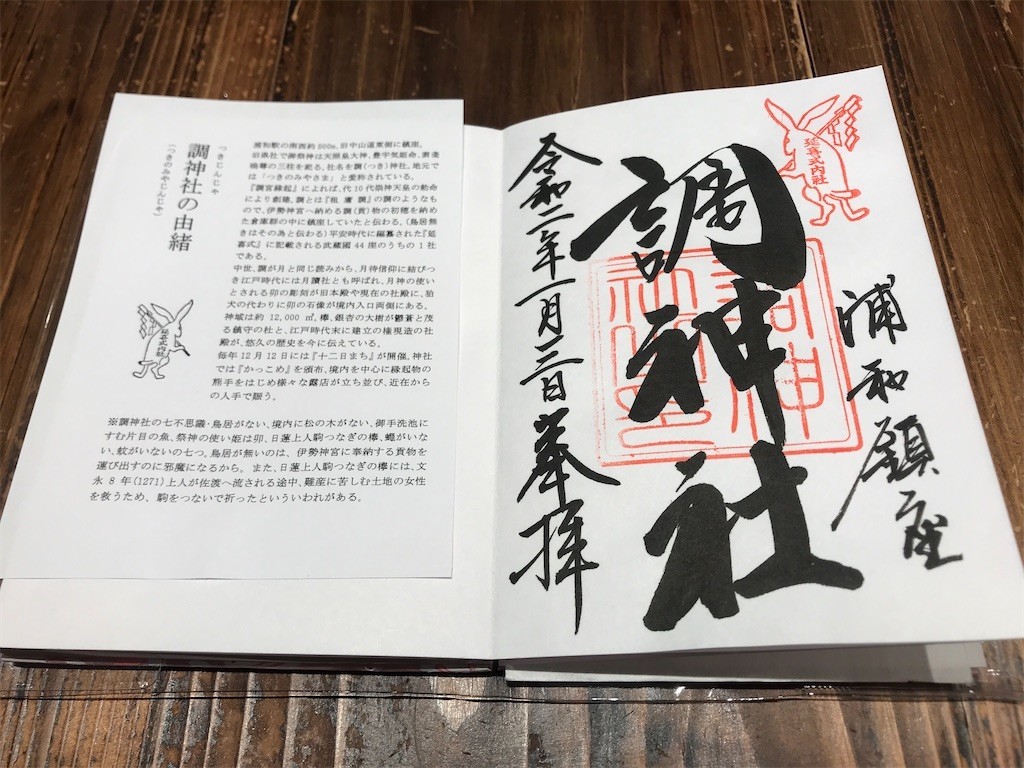 つきじんじゃ
調神社の由緒
（つきのみやじんじゃ）
延喜式内社
浦和駅の南西約500m、旧中山道東側に鎮座。
旧県社で御祭神は天照皇大神、豊宇気姫命、素盞
嗚尊の三柱を祀る。社名を調(つき)神社。地元で
は「つきのみやさま」と愛称されている。
『調宮縁起』によれば、代10代崇神天皇の勅命
により創建。調とは『租 庸 調』の調のようなも
ので、伊勢神宮へ納める調(貢)物の初穂を納め
た倉庫群の中に鎮座していたと伝わる。（鳥居無
きはその為と伝わる）平安時代に編纂された『延
喜式』に記載される武蔵國44座のうちの1社
である。
中世、調が月と同じ読みから、月待信仰に結びつ
き江戸時代には月讀社とも呼ばれ、月神の使い
とされる卯の彫刻が旧本殿や現在の社殿に、狛
犬の代わりに卯の石像が境内入口両側にある。
神域は約 12,000 ㎡、欅、銀杏の大樹が鬱蒼と茂
る鎮守の杜と、江戸時代末に建立の権現造の社
殿が、悠久の歴史を今に伝えている。
毎年12月12日には『十二日まち』が開催。神社
では『かっこめ』を頒布、境内を中心に縁起物の
熊手をはじめ様々な露店が立ち並び、近在から
の人手で賑う。
※調神社の七不思議・鳥居がない、境内に松の木がない、御手洗池に
すむ片目の魚、祭神の使い姫は卯、日蓮上人駒つなぎの欅、蝿がいな
い、蚊がいないの七つ。鳥居が無いのは、伊勢神宮に奉納する貢物を
運び出すのに邪魔になるから。また、日蓮上人駒つなぎの欅には、文
永 8 年(1271)上人が佐渡へ流される途中、難産に苦しむ土地の女性
を救うため、駒をつないで祈ったといういわれがある。
延喜式内社
浦和鎮座
調神社
令和二年一月三日奉拝